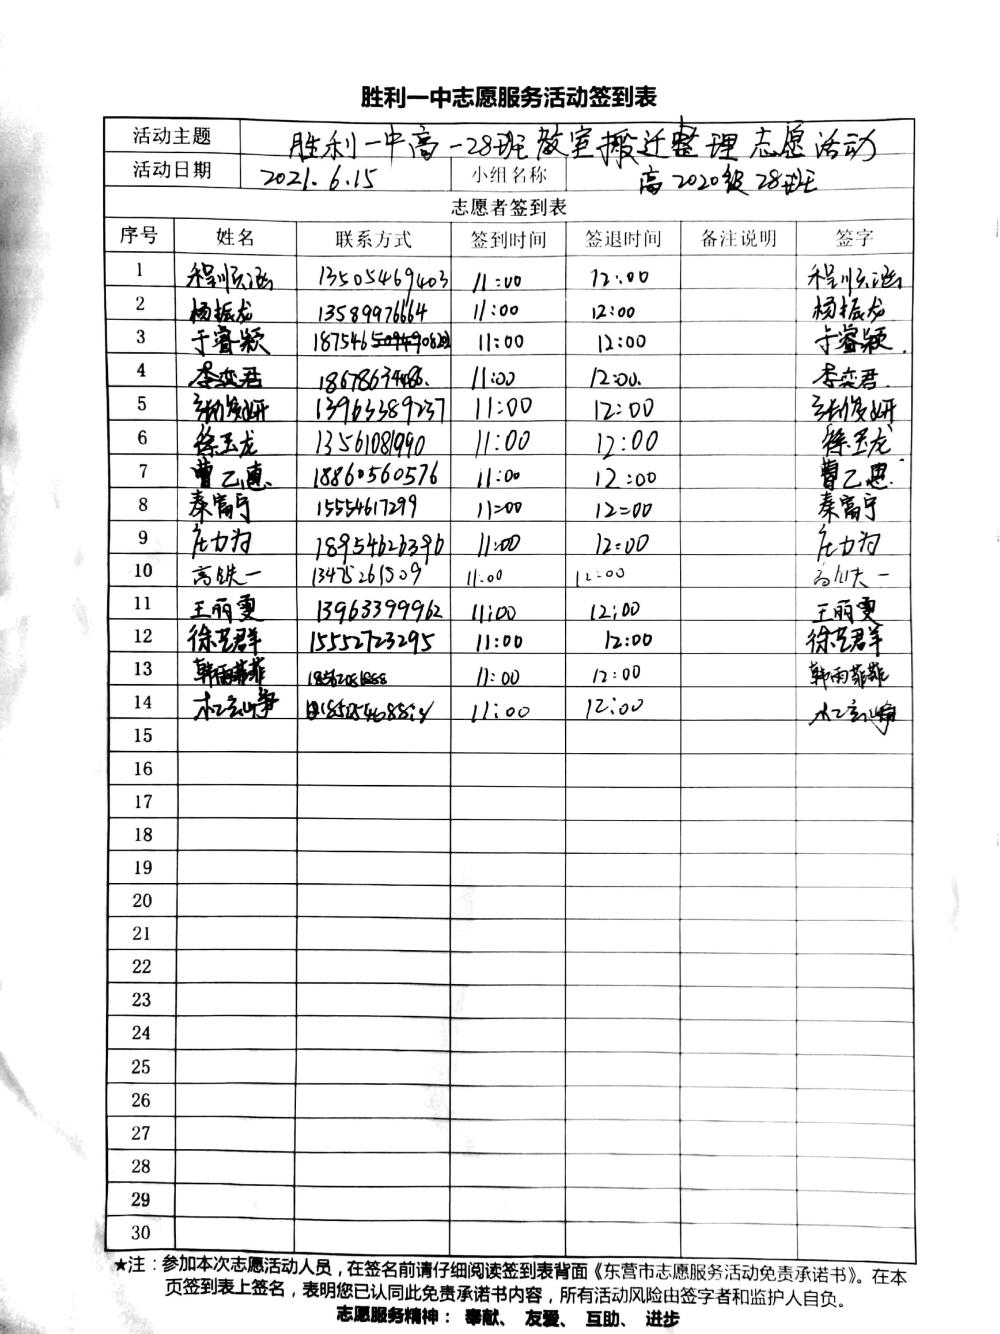 胜利一中志愿服务活动签到表
活动主题 胜利一中高一28班教室搬迁整理志愿活动
活动日期 2021.6.15 小组名称 高2020级28班
志愿者签到表
序号 姓名 联系方式 签到时间 签退时间 备注说明 签字
1 程顺涵 13505469403 11:00 12:00 程顺涵
2 杨振龙 13589976664 11:00 12:00 杨振龙
3 于睿颖 187546 11:00 12:00 于睿颖
4 李奕君 11:00 12:00 李奕君
5 13963389237 11:00 12:00
6 徐玉龙 13561081990 11:00 12:00 徐玉龙
7 曹乙惠 18860560576 11:00 12:00 曹乙惠
8 秦富宁 15554617299 11:00 12:00 秦富宁
9 庄力为 18954626396 11:00 12:00 庄力为
10 高铁一 13475261509 11:00 12:00 高铁一
11 王丽雯 13963399962 11:00 12:00 王丽雯
12 徐艺群 15552723295 11:00 12:00 徐艺群
13 韩雨菲 11:00 12:00 韩雨菲
14 11:00 12:00
15
16
17
18
19
20
21
22
23
24
25
26
27
28
29
30
★注：参加本次志愿活动人员，在签名前请仔细阅读签到表背面《东营市志愿服务活动免责承诺书》。在本
页签到表上签名，表明您已认同此免责承诺书内容，所有活动风险由签字者和监护人自负。
志愿服务精神： 奉献、 友爱、 互助、 进步